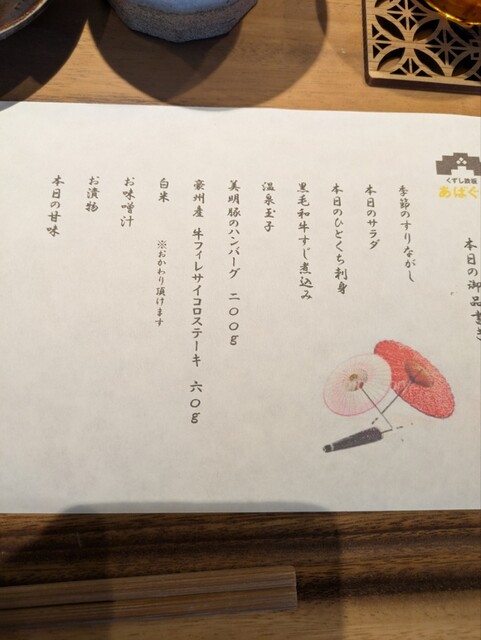 くずし鉄板
あばぐ
本日の御品書き
季節のすりながし
本日のサラダ
本日のひとくち刺身
黒毛和牛すじ煮込み
温泉玉子
美明豚のハンバーグ 二〇〇g
豪州産 牛フィレサイコロステーキ 六〇g
白米 ※おかわり頂けます
お味噌汁
お漬物
本日の甘味